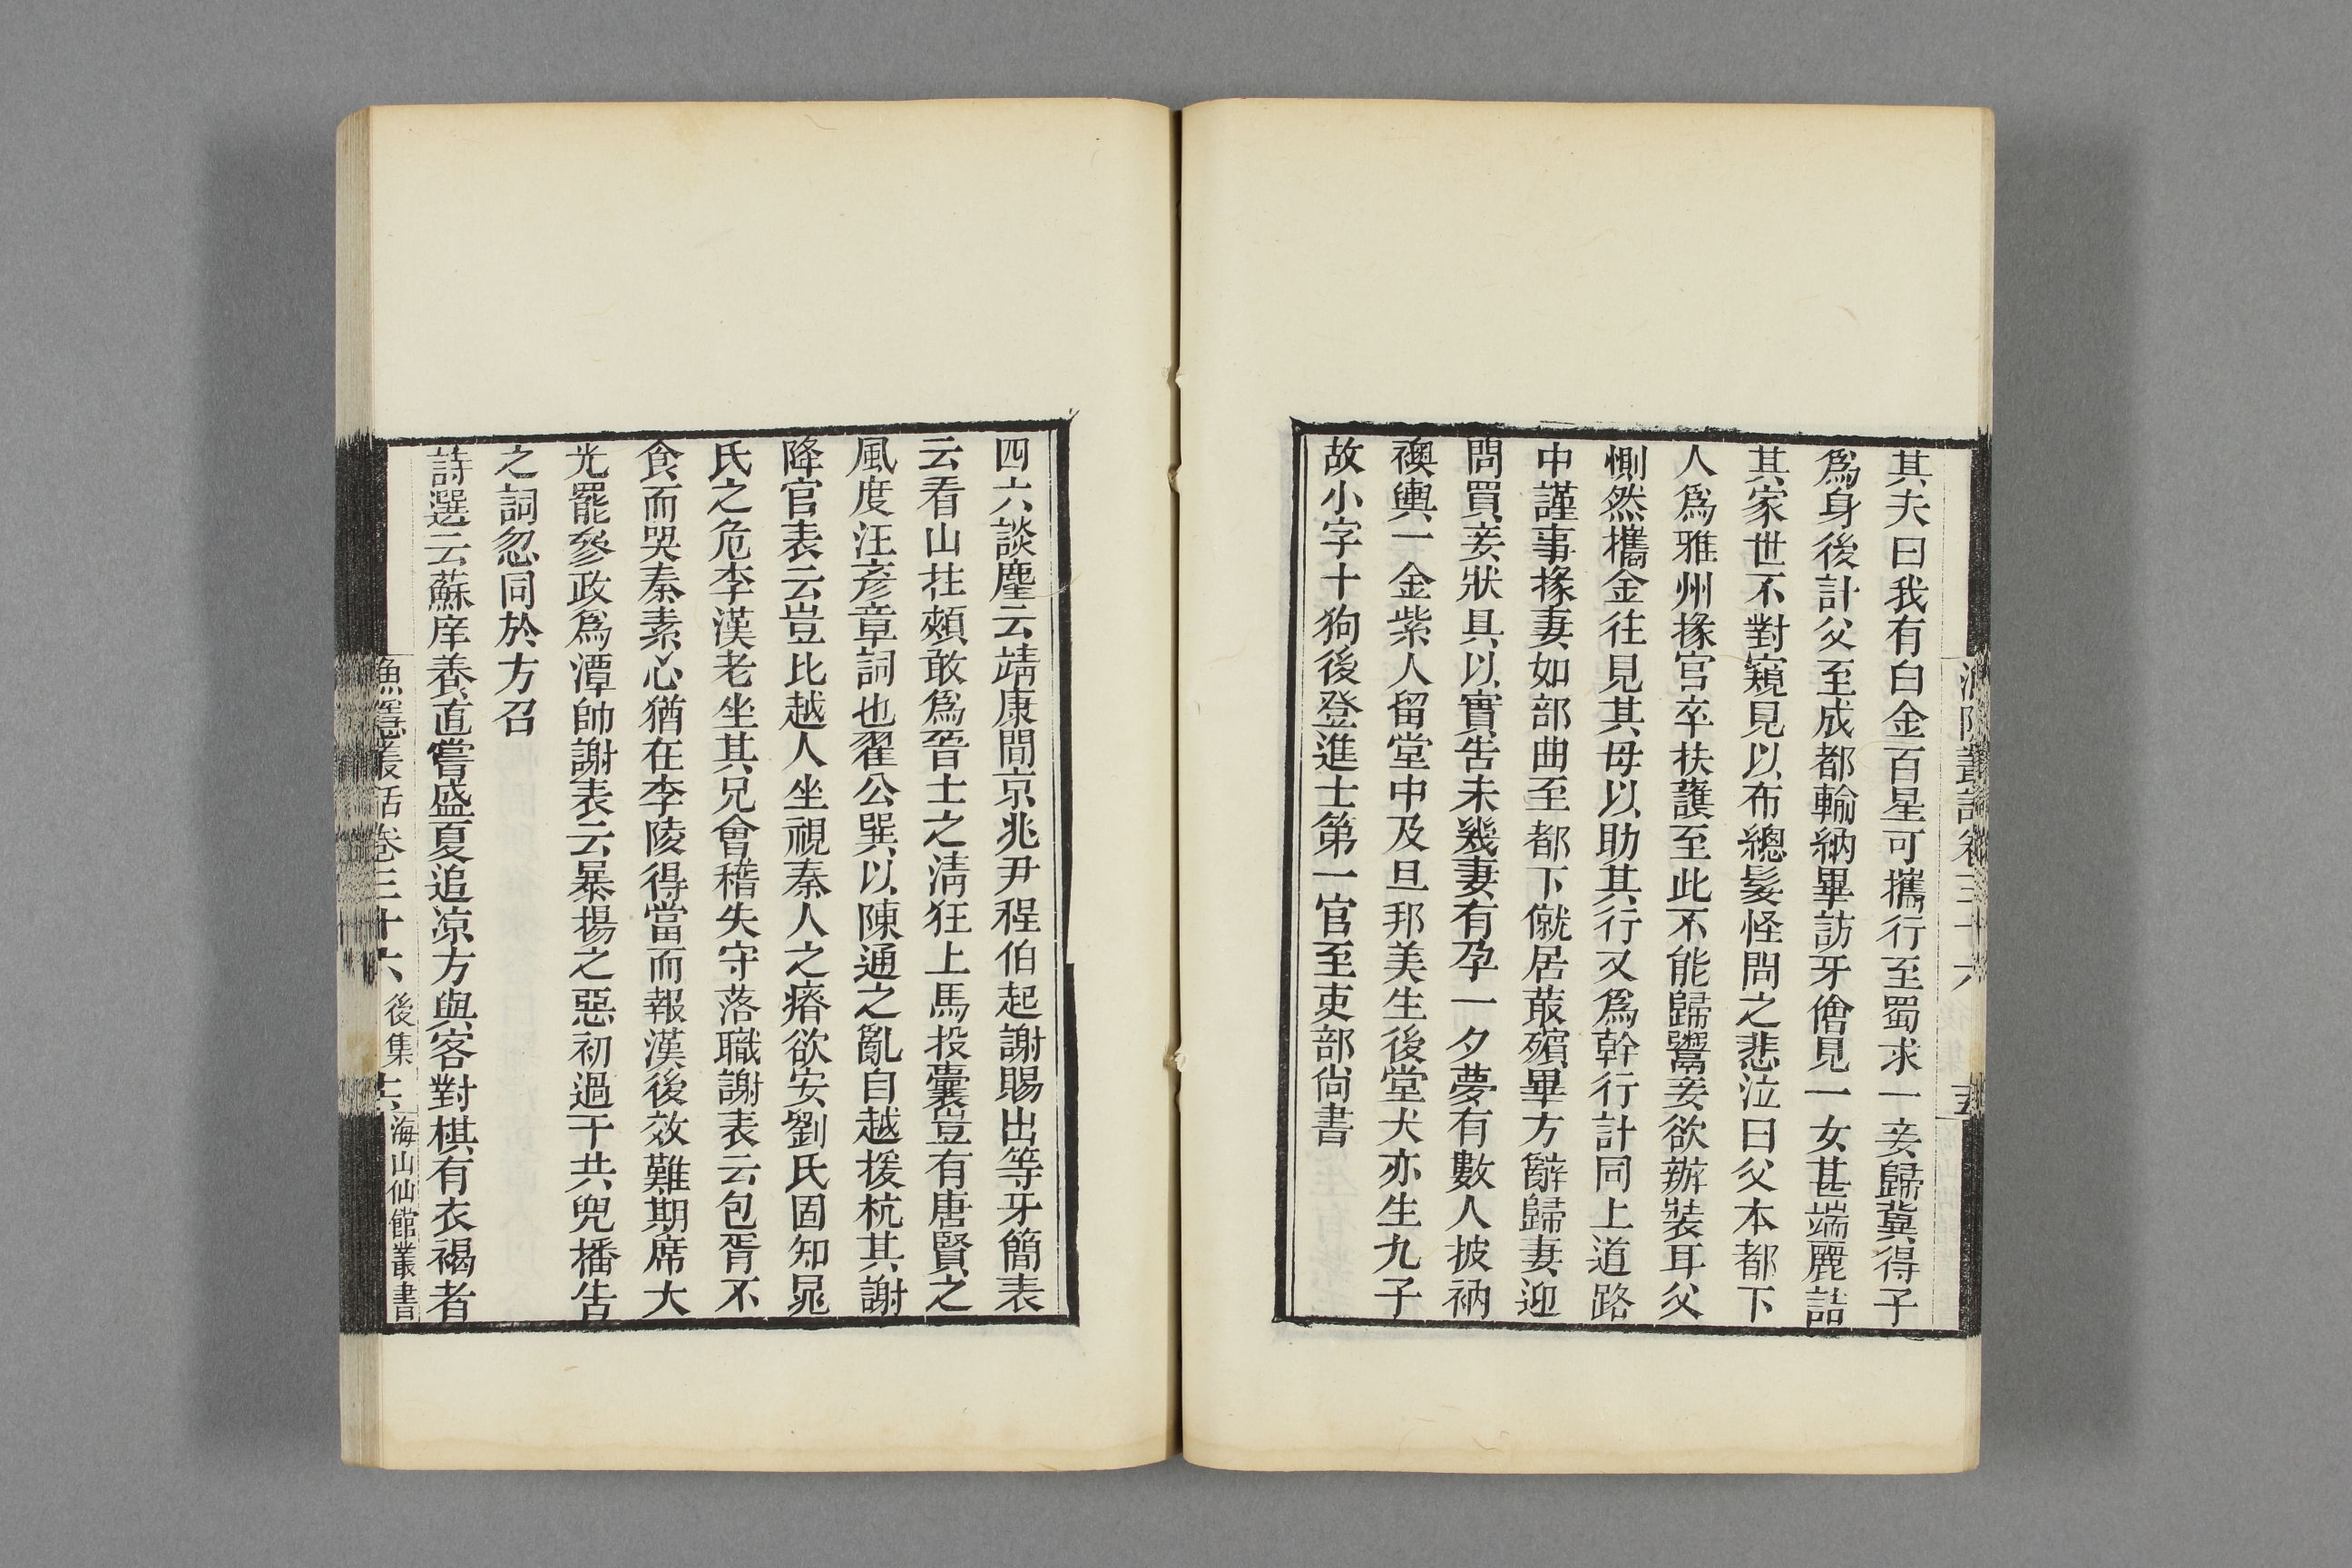 漁隱叢話卷三十六
其夫曰我有白金百星可攜行至蜀求一妾歸冀得子
爲身後計父至成都輸納畢訪牙儈見一女甚端麗詰
其家世不對窺見以布總髮怪問之悲泣曰父本都下
人爲雅州掾官卒扶護至此不能歸鬻妾欲辦裝耳父
惻然攜金往見其母以助其行又爲幹行計同上道路
中謹事掾妻如部曲至都下僦居菆殯畢方辭歸妻迎
問買妾狀具以實告未幾妻有孕一夕夢有數人披衲
襖輿一金紫人留堂中及旦邦美生後堂犬亦生九子
故小字十狗後登進士第一官至吏部尙書
四六談麈云靖康間京兆尹程伯起謝賜出等牙簡表
云看山拄頰敢爲晉士之淸狂上馬投囊豈有唐賢之
風度汪彥章詞也翟公巽以陳通之亂自越援杭其謝
降官表云豈比越人坐視秦人之瘠欲安劉氏固知晁
氏之危李漢老坐其兄會稽失守落職謝表云包胥不
食而哭秦素心猶在李陵得當而報漢後效難期席大
光罷參政爲潭帥謝表云暴揚之惡初過于共兜播告
之詞忽同於方召
詩選云蘇庠養直嘗盛夏追凉方與客對棋有衣褐者
漁隱叢話卷三十六 後集 海山仙館叢書